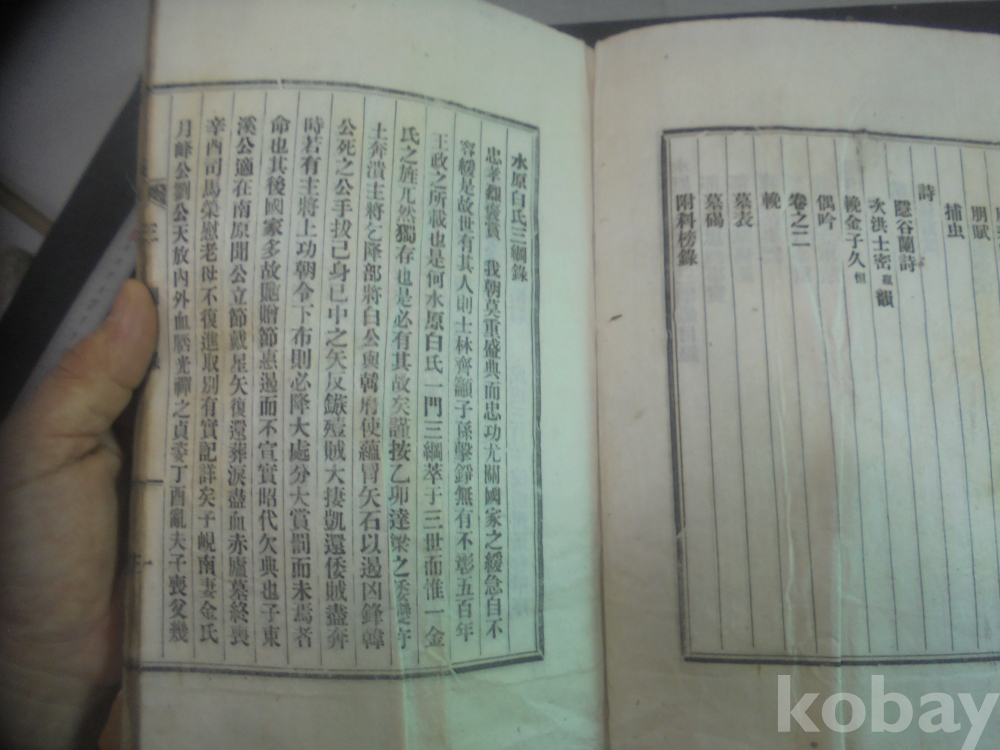 朋賦
捕虫
詩
隱谷蘭詩
次洪士密韻
輓金子久恒
偶吟
卷之二
輓
墓表
墓碣
附科榜錄
水原白氏三綱錄
忠孝烈褒賞 我朝莫重盛典而忠功尤關國家之緩急自不
容緩是故世有其人則士林齊籲子孫擊錚無有不彰五百年
王政之所載也是何水原白氏一門三綱萃于三世而惟一金
氏之旌兀然獨存也是必有其故矣謹按乙卯達梁之變守
土奔潰主將乞降部將白公與韓府使蘊冒矢石以遏凶鋒韓
公死之公手拔己身已中之矢反鏃殪賊大捷凱還倭賊盡奔
時若有主將上功朝令下布則必降大處分大賞罰而未焉者
命也其後國家多故貤贈節惠遏而不宣實昭代欠典也子東
溪公適在南原聞公立節戴星矢復還葬淚盡血赤廬墓終喪
辛酉司馬榮慰老母不復進取別有實記詳矣子峴南妻金氏
月峰公劉公天放內外血 光禪之貞 丁酉亂夫子喪父幾
kobay